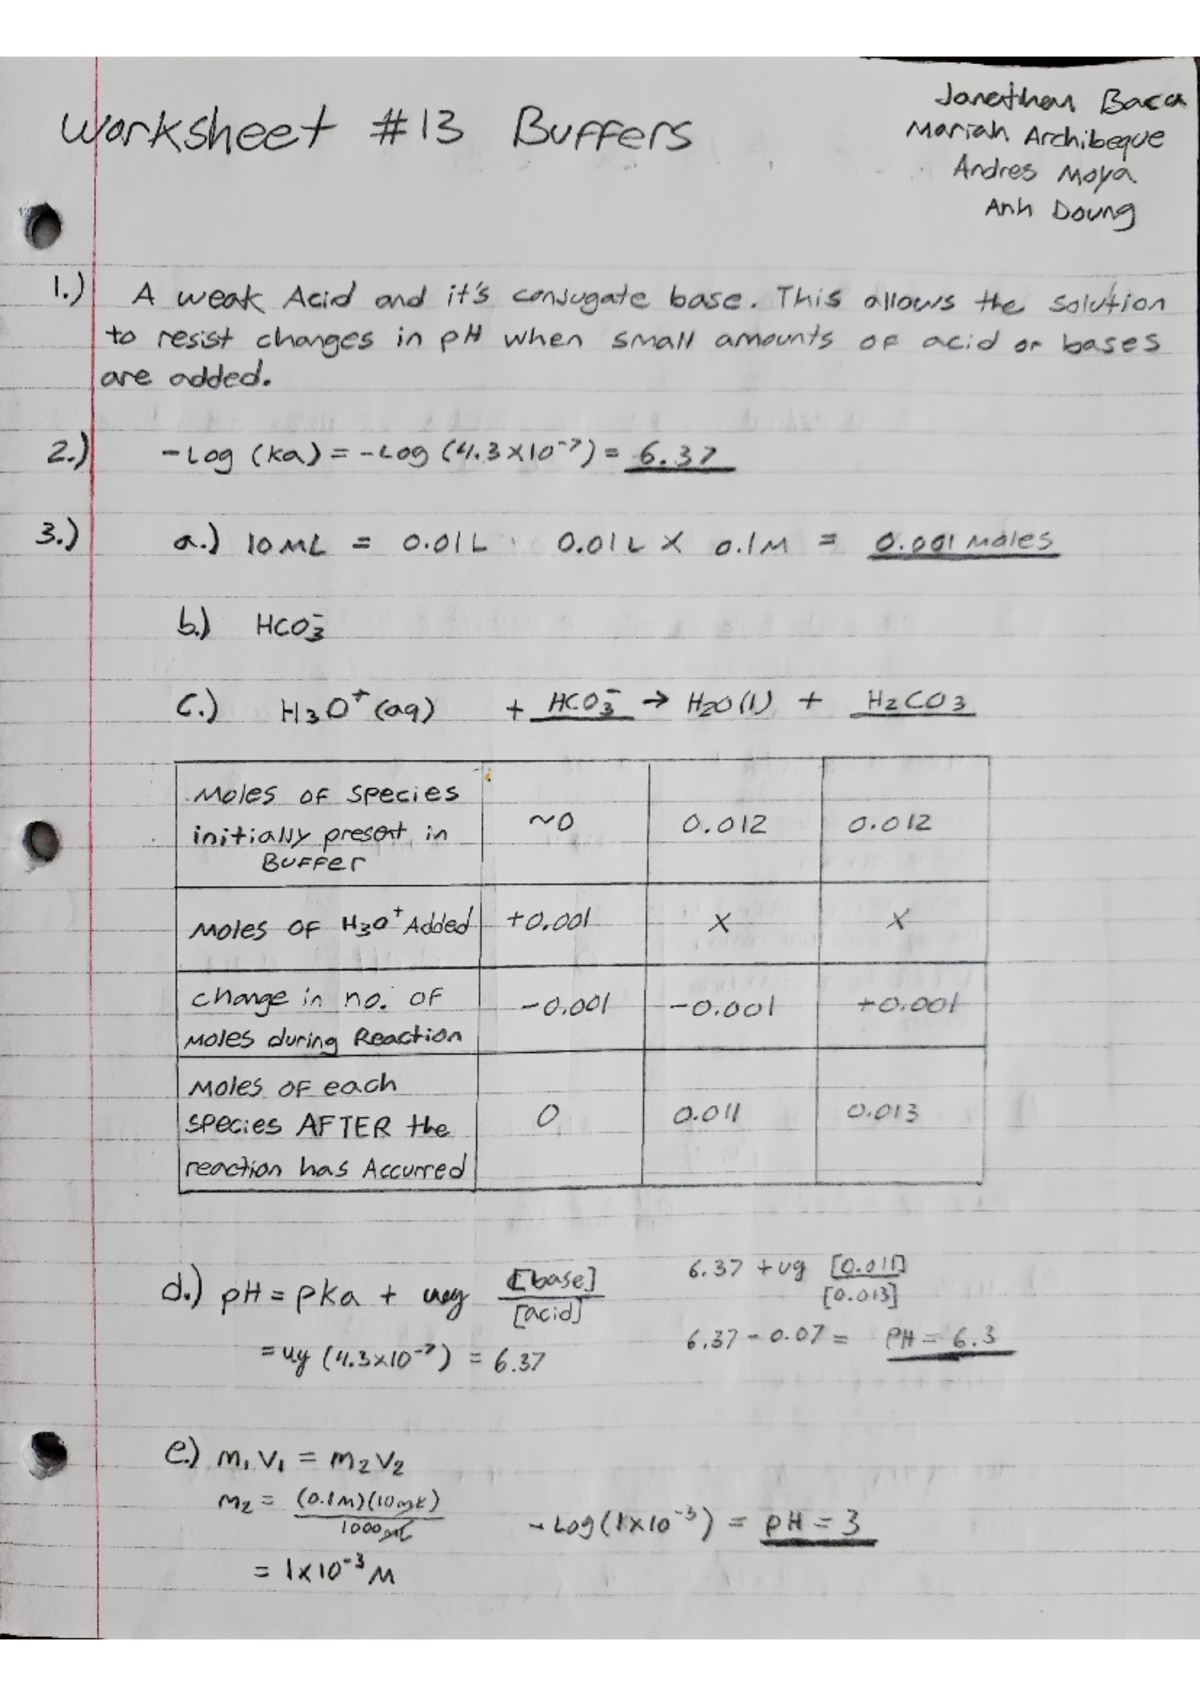 Worksheet #13 Buffers
Jonathan Baca
Mariah Archibeque
Andres Moya
Anh Doung
1.) A weak Acid and it's conjugate base. This allows the solution
to resist changes in pH when small amounts of acid or bases
are added.
2.) -Log (Ka) = -Log (4.3x10⁻⁷) = 6.37
3.) a.) 10 mL = 0.01L 0.01L x 0.1M = 0.001 Moles
b.) HCO₃⁻
c.) H₃O⁺ (aq) + HCO₃⁻ → H₂O(l) + H₂CO₃
Moles of species
initially present in
Buffer
~0 0.012 0.012
Moles of H₃O⁺ Added +0.001 X X
change in no. of
Moles during Reaction
-0.001 -0.001 +0.001
Moles of each
species AFTER the
reaction has Accurred
0 0.011 0.013
d.) pH = pKa + log [base]/[acid]
6.37 + log [0.011]/[0.013]
= log (4.3x10⁻⁷) = 6.37
6.37 - 0.07 = pH = 6.3
e.) m₁V₁ = m₂V₂
m₂ = (0.1M)(10mL)/1000mL
-Log(1x10⁻³) = pH = 3
= 1x10⁻³ M